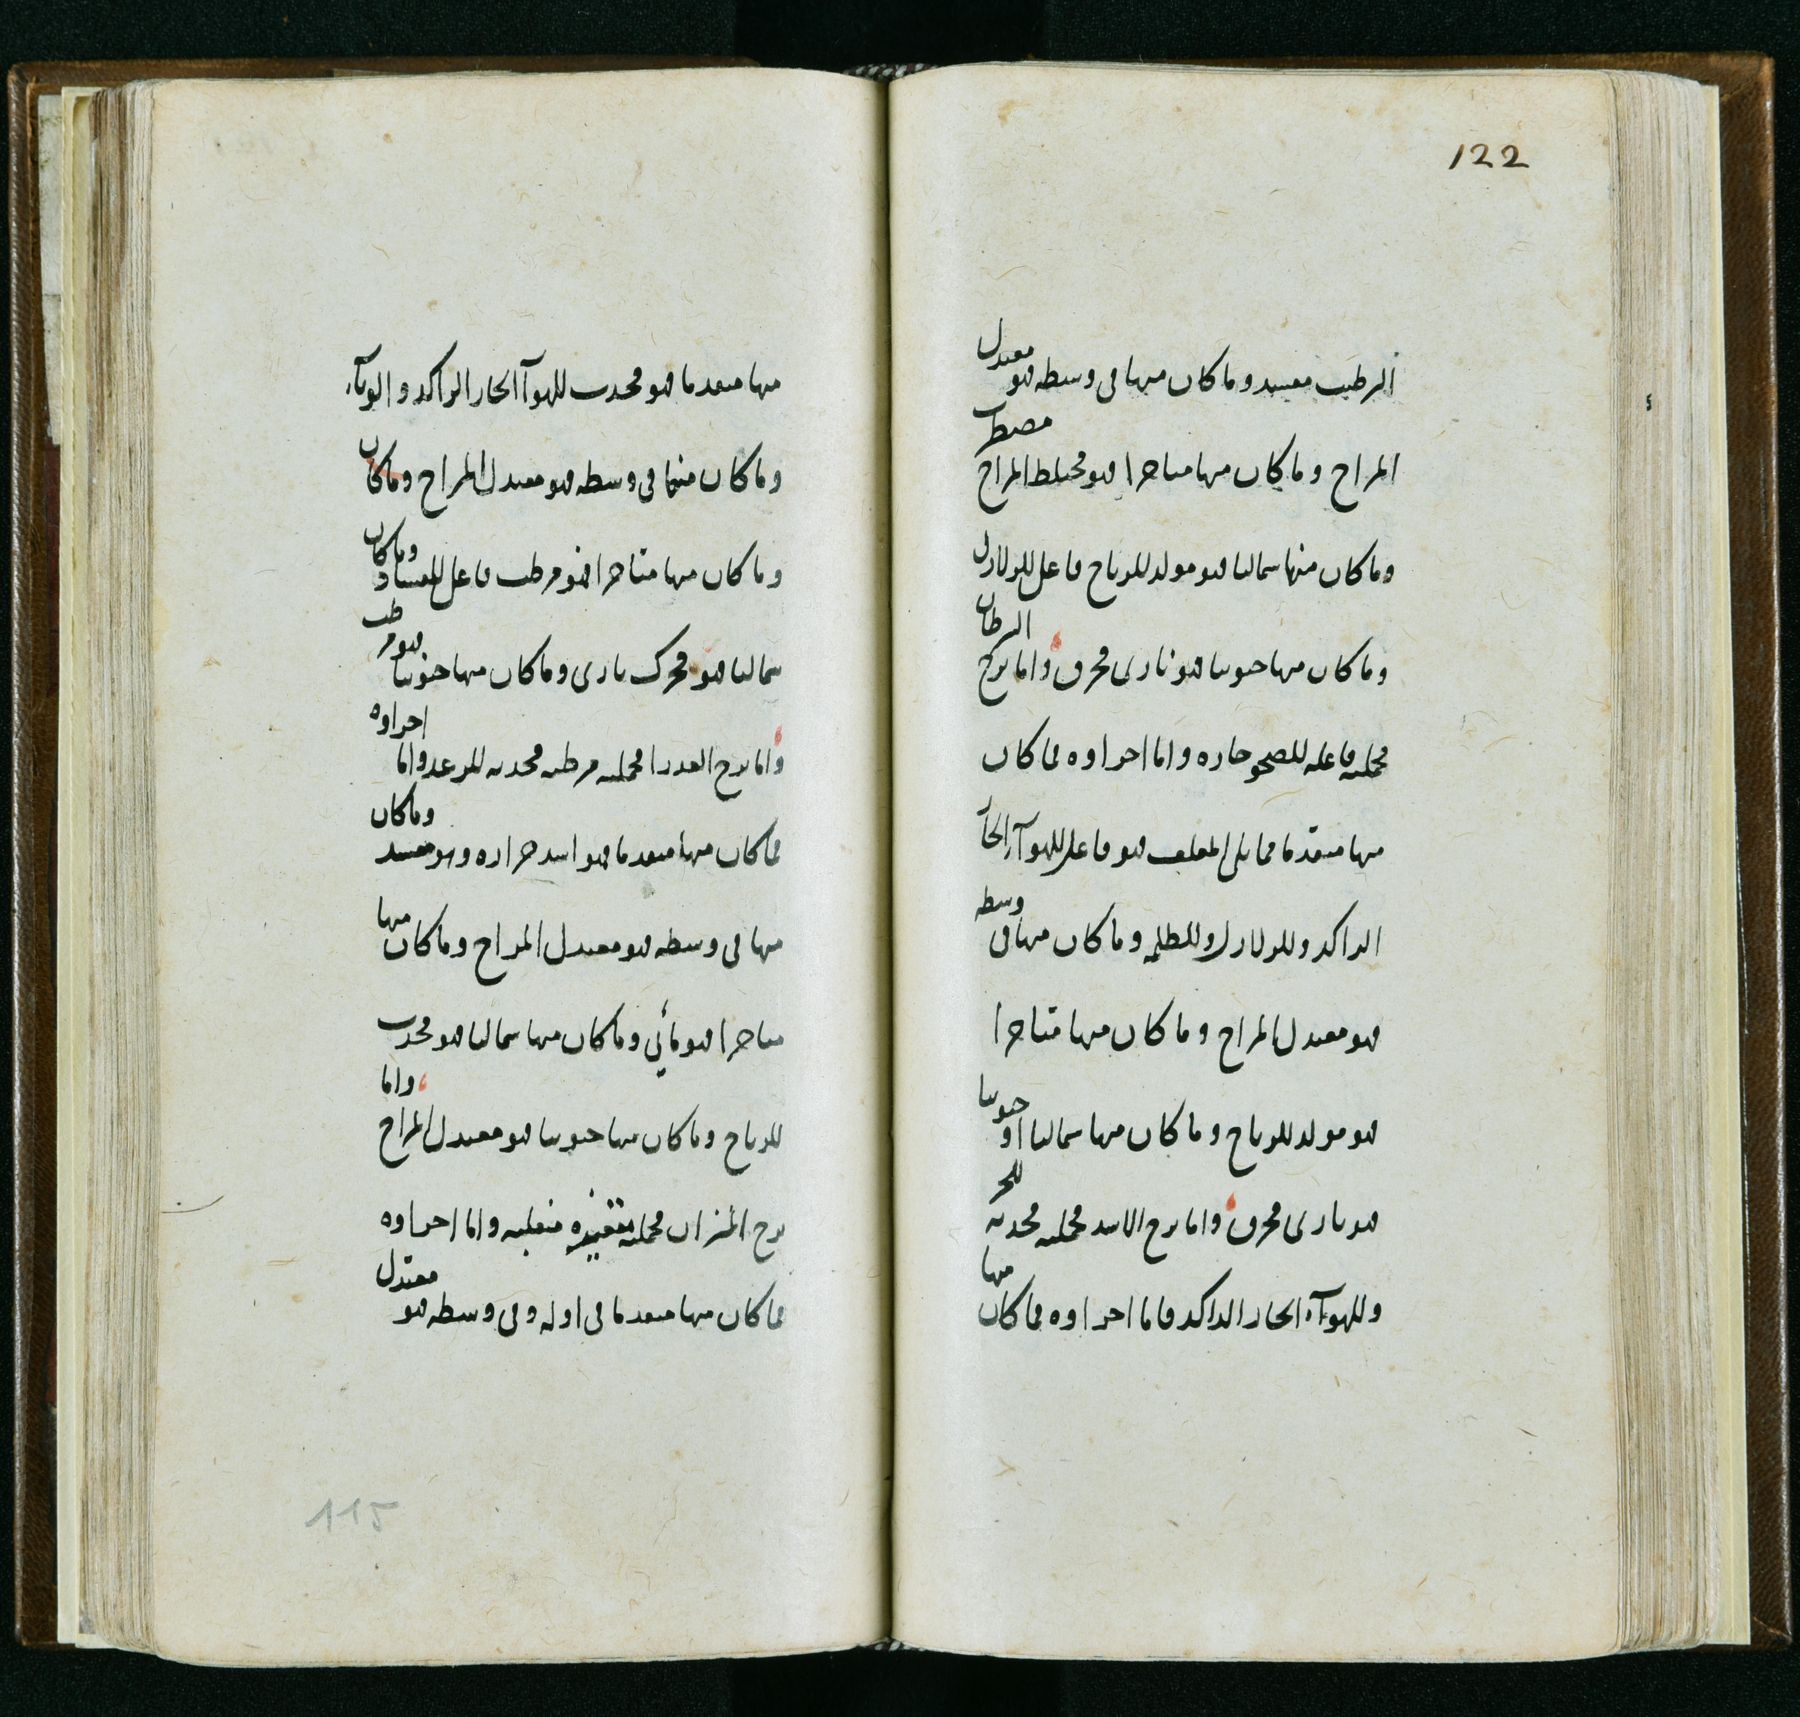 122
الرطب مفسد وما كان منها في وسطه فهو معتدل
المزاج وما كان منها متاخرا فهو مختلط المزاج مضطرب
وما كان منها شماليا فهو مولد للرياح فاعل للزلازل
وما كان منها جنوبيا فهو ناري محرق واما برج السرطان
فجملته فاعله للصحو حاره واما اجزاوه فما كان
منها متقدما مما يلي المعلف فهو فاعل للهوآ الحآر
الراكد وللزلازل وللظلمه وما كان منها في وسطه
فهو معتدل المزاج وما كان منها متاخرا
فهو مولد للرياح وما كان منها شماليا او جنوبيا
فهو ناري محرق واما برج الاسد فجملته محدثه للحر
وللهوآء الحار الراكد فاما اجزاوه فما كان منها
منها متقدما فهو محدث للهوآ الحار الراكد والوبآء
وما كان منها في وسطه فهو معتدل المزاج وما كان
وما كان منها متاخرا فهو مرطب فاعل للفساد وما كان
شماليا فهو محرك ناري وما كان منها جنوبيا فهو مرطب
واما برج العذرا فجملته مرطبه محدثه للرعد واما اجزاوه
فما كان منها متقدما فهو اشد حراره وهو مفسد وما كان
منها في وسطه فهو معتدل المزاج وما كان منها
متاخرا فهو مائي وما كان منها شماليا فهو محدث
للرياح وما كان منها جنوبيا فهو معتدل المزاج واما
برج الميزان فجملته متغيره منقلبه واما اجزاوه
فما كان منها متقدما في اوله وفي وسطه فهو معتدل
115